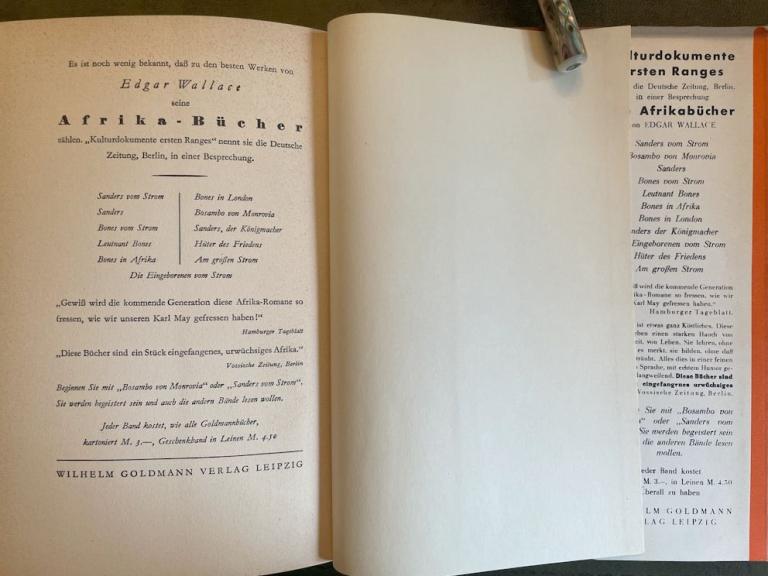 Es ist noch wenig bekannt, daß zu den besten Werken von
Edgar Wallace
seine
Afrika-Bücher
zählen. „Kulturdokumente ersten Ranges“ nennt sie die Deutsche
Zeitung, Berlin, in einer Besprechung.
Sanders vom Strom
Sanders
Bones vom Strom
Leutnant Bones
Bones in Afrika
Bones in London
Bosambo von Monrovia
Sanders, der Königmacher
Hüter des Friedens
Am großen Strom
Die Eingeborenen vom Strom
„Gewiß wird die kommende Generation diese Afrika-Romane so
fressen, wie wir unseren Karl May gefressen haben!“
Hamburger Tageblatt
„Diese Bücher sind ein Stück eingefangenes, urwüchsiges Afrika.“
Vossische Zeitung, Berlin
Beginnen Sie mit „Bosambo von Monrovia“ oder „Sanders vom Strom“.
Sie werden begeistert sein und auch die andern Bände lesen wollen.
Jeder Band kostet, wie alle Goldmannbücher,
kartoniert M. 3.—, Geschenkband in Leinen M. 4.50
WILHELM GOLDMANN VERLAG LEIPZIG
lturdokumente
rsten Ranges
die Deutsche Zeitung, Berlin,
in einer Besprechung
Afrikabücher
on EDGAR WALLACE
Sanders vom Strom
Bosambo von Monrovia
Sanders
Bones vom Strom
Leutnant Bones
Bones in Afrika
Bones in London
nders der Königmacher
Eingeborenen vom Strom
Hüter des Friedens
Am großen Strom
ß wird die kommende Generation
ika-Romane so fressen, wie wir
Karl May gefressen haben.“
Hamburger Tageblatt.
ist etwas ganz Köstliches. Diese
eben einen starken Hauch von
eit, von Leben. Sie lehren, ohne
es merkt, sie bilden, ohne daß
sträubt. Alles dies in einer feinen
Sprache, mit echtem Humor ge-
langweilend. Diese Bücher sind
eingefangenes urwüchsiges
Vossische Zeitung, Berlin.
Sie mit „Bosambo von
“ oder „Sanders vom
Sie werden begeistert sein
die anderen Bände lesen
wollen.
eder Band kostet
M. 3.–, in Leinen M. 4.50
Überall zu haben
LM GOLDMANN
LAG LEIPZIG